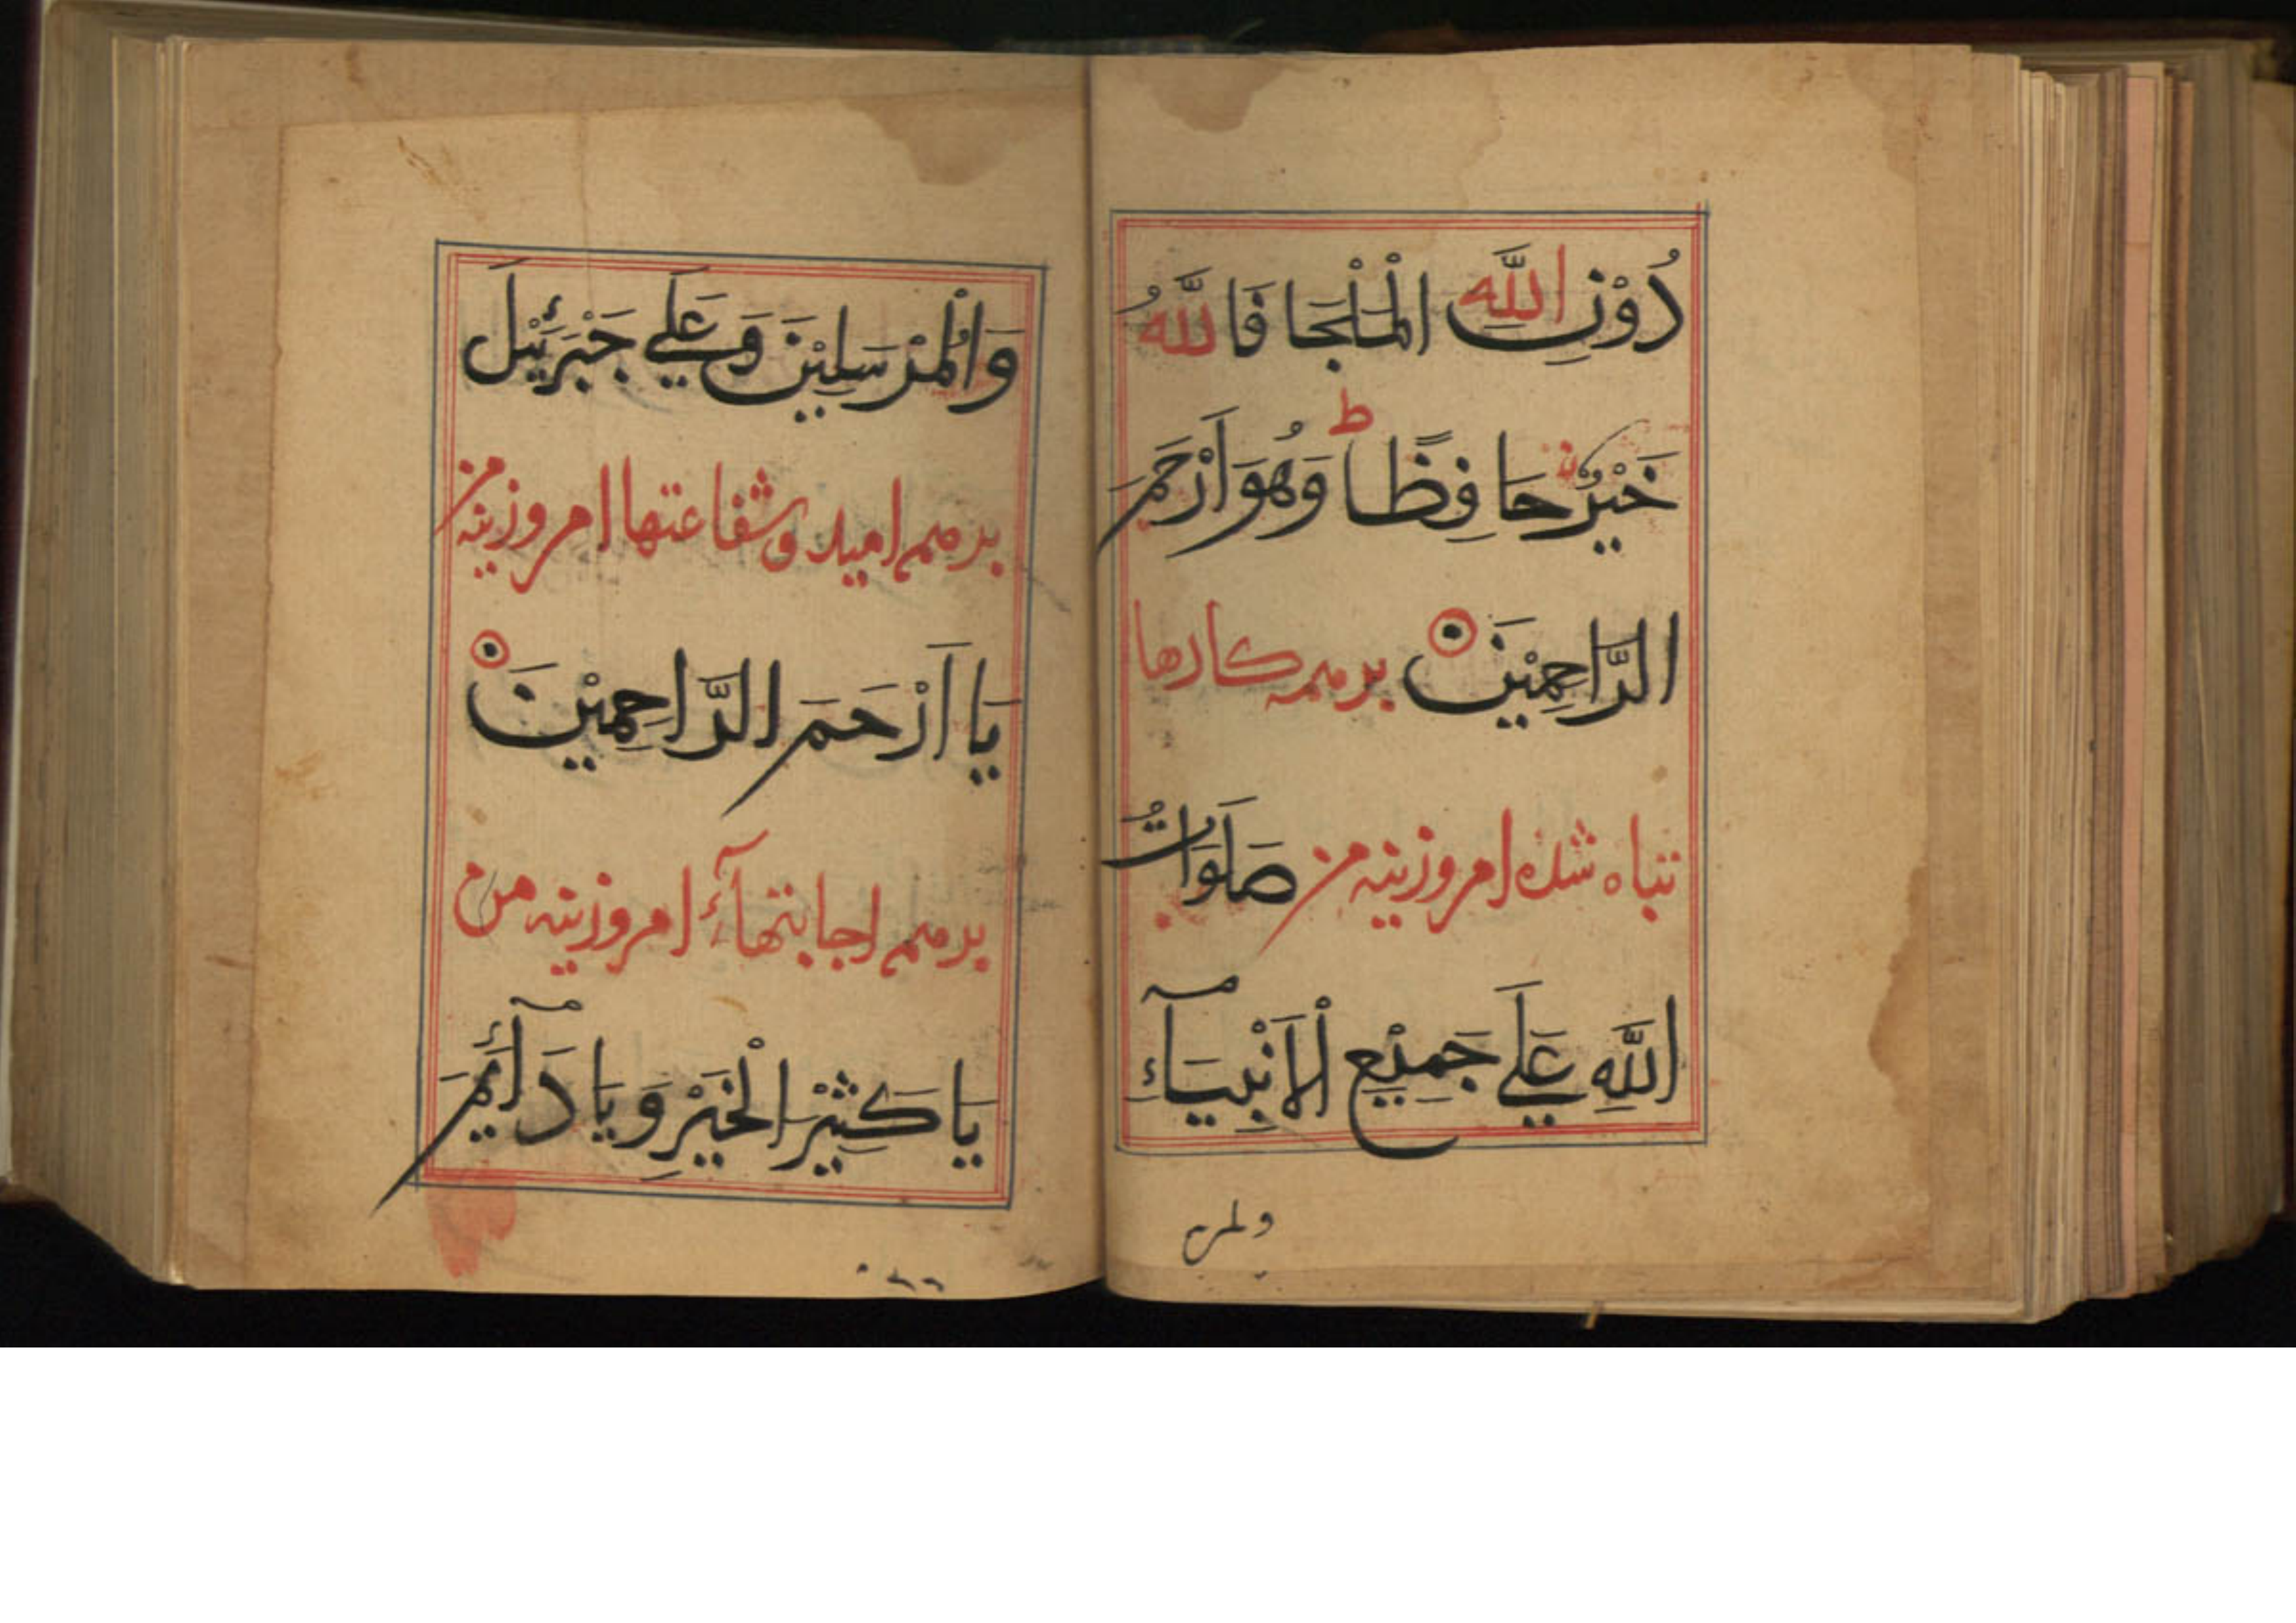 دُوْنِ اللّٰهِ الْمَلْجَا فَاللّٰهُ
خَيْرٌ حَافِظًا ط وَهُوَ اَرْحَمُ
الرَّاحِمِيْنَ بر همه کارها
تباه شده امروزینه من صَلَوَاتُ
اللّٰهِ عَلَى جَمِيْعِ الْاَنْبِيَآءِ
وَالْمُرْسَلِيْنَ وَعَلٰى جَبْرَئِيْلَ
بر همه امید و شفاعتها امروزینه من
يَا اَرْحَمَ الرَّاحِمِيْنَ
بر همه اجابتهآء امروزینه من
يَا كَثِيْرَ الْخَيْرِ وَيَا دَآئِمَ